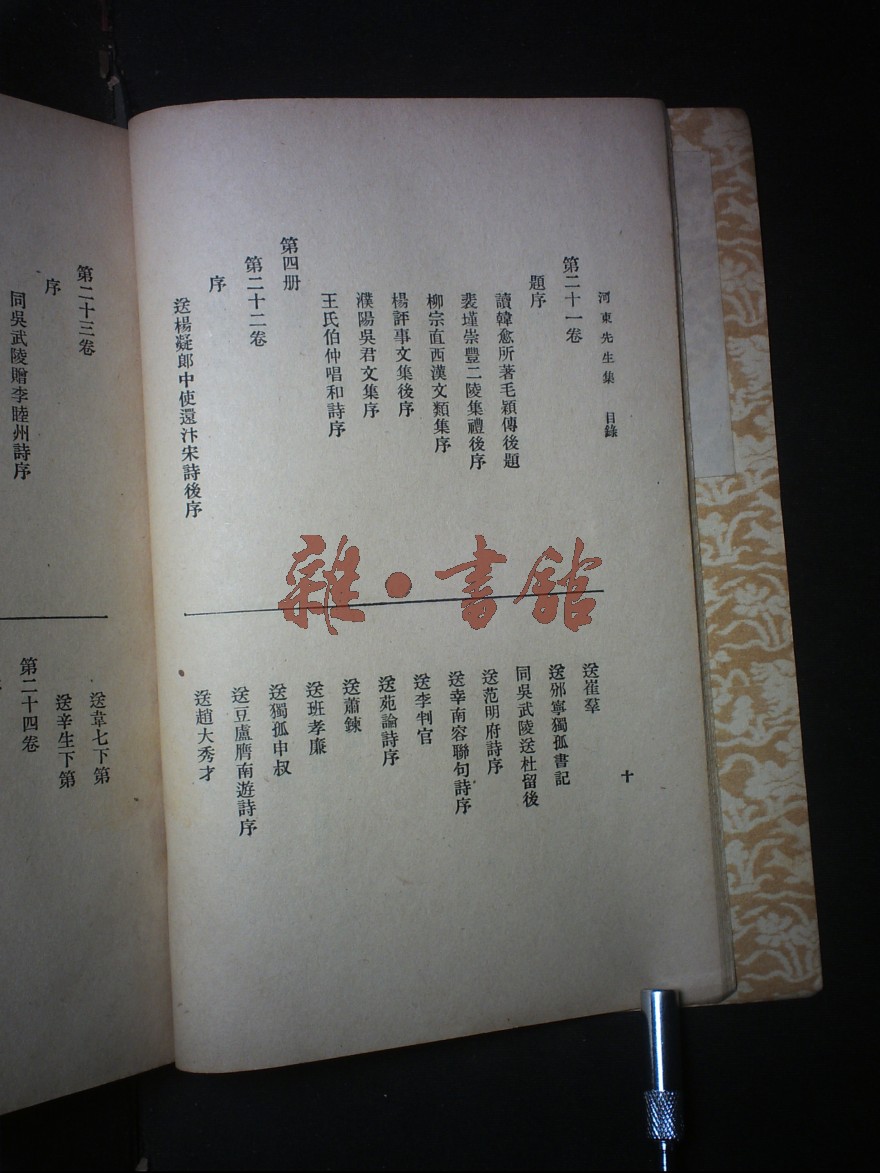 河東先生集　目錄
第二十一卷
題序
讀韓愈所著毛穎傳後題
裴墐崇豐二陵集禮後序
柳宗直西漢文類集序
楊評事文集後序
濮陽吳君文集序
王氏伯仲唱和詩序
第四册
第二十二卷
序
送楊凝郎中使還汴宋詩後序
十
送崔羣
送邠寧獨孤書記
同吳武陵送杜留後
送范明府詩序
送幸南容聯句詩序
送李判官
送苑論詩序
送蕭鍊
送班孝廉
送獨孤申叔
送豆盧膺南遊詩序
送趙大秀才
第二十三卷
序
同吳武陵贈李睦州詩序
送韋七下第
送辛生下第
第二十四卷
雜·書館